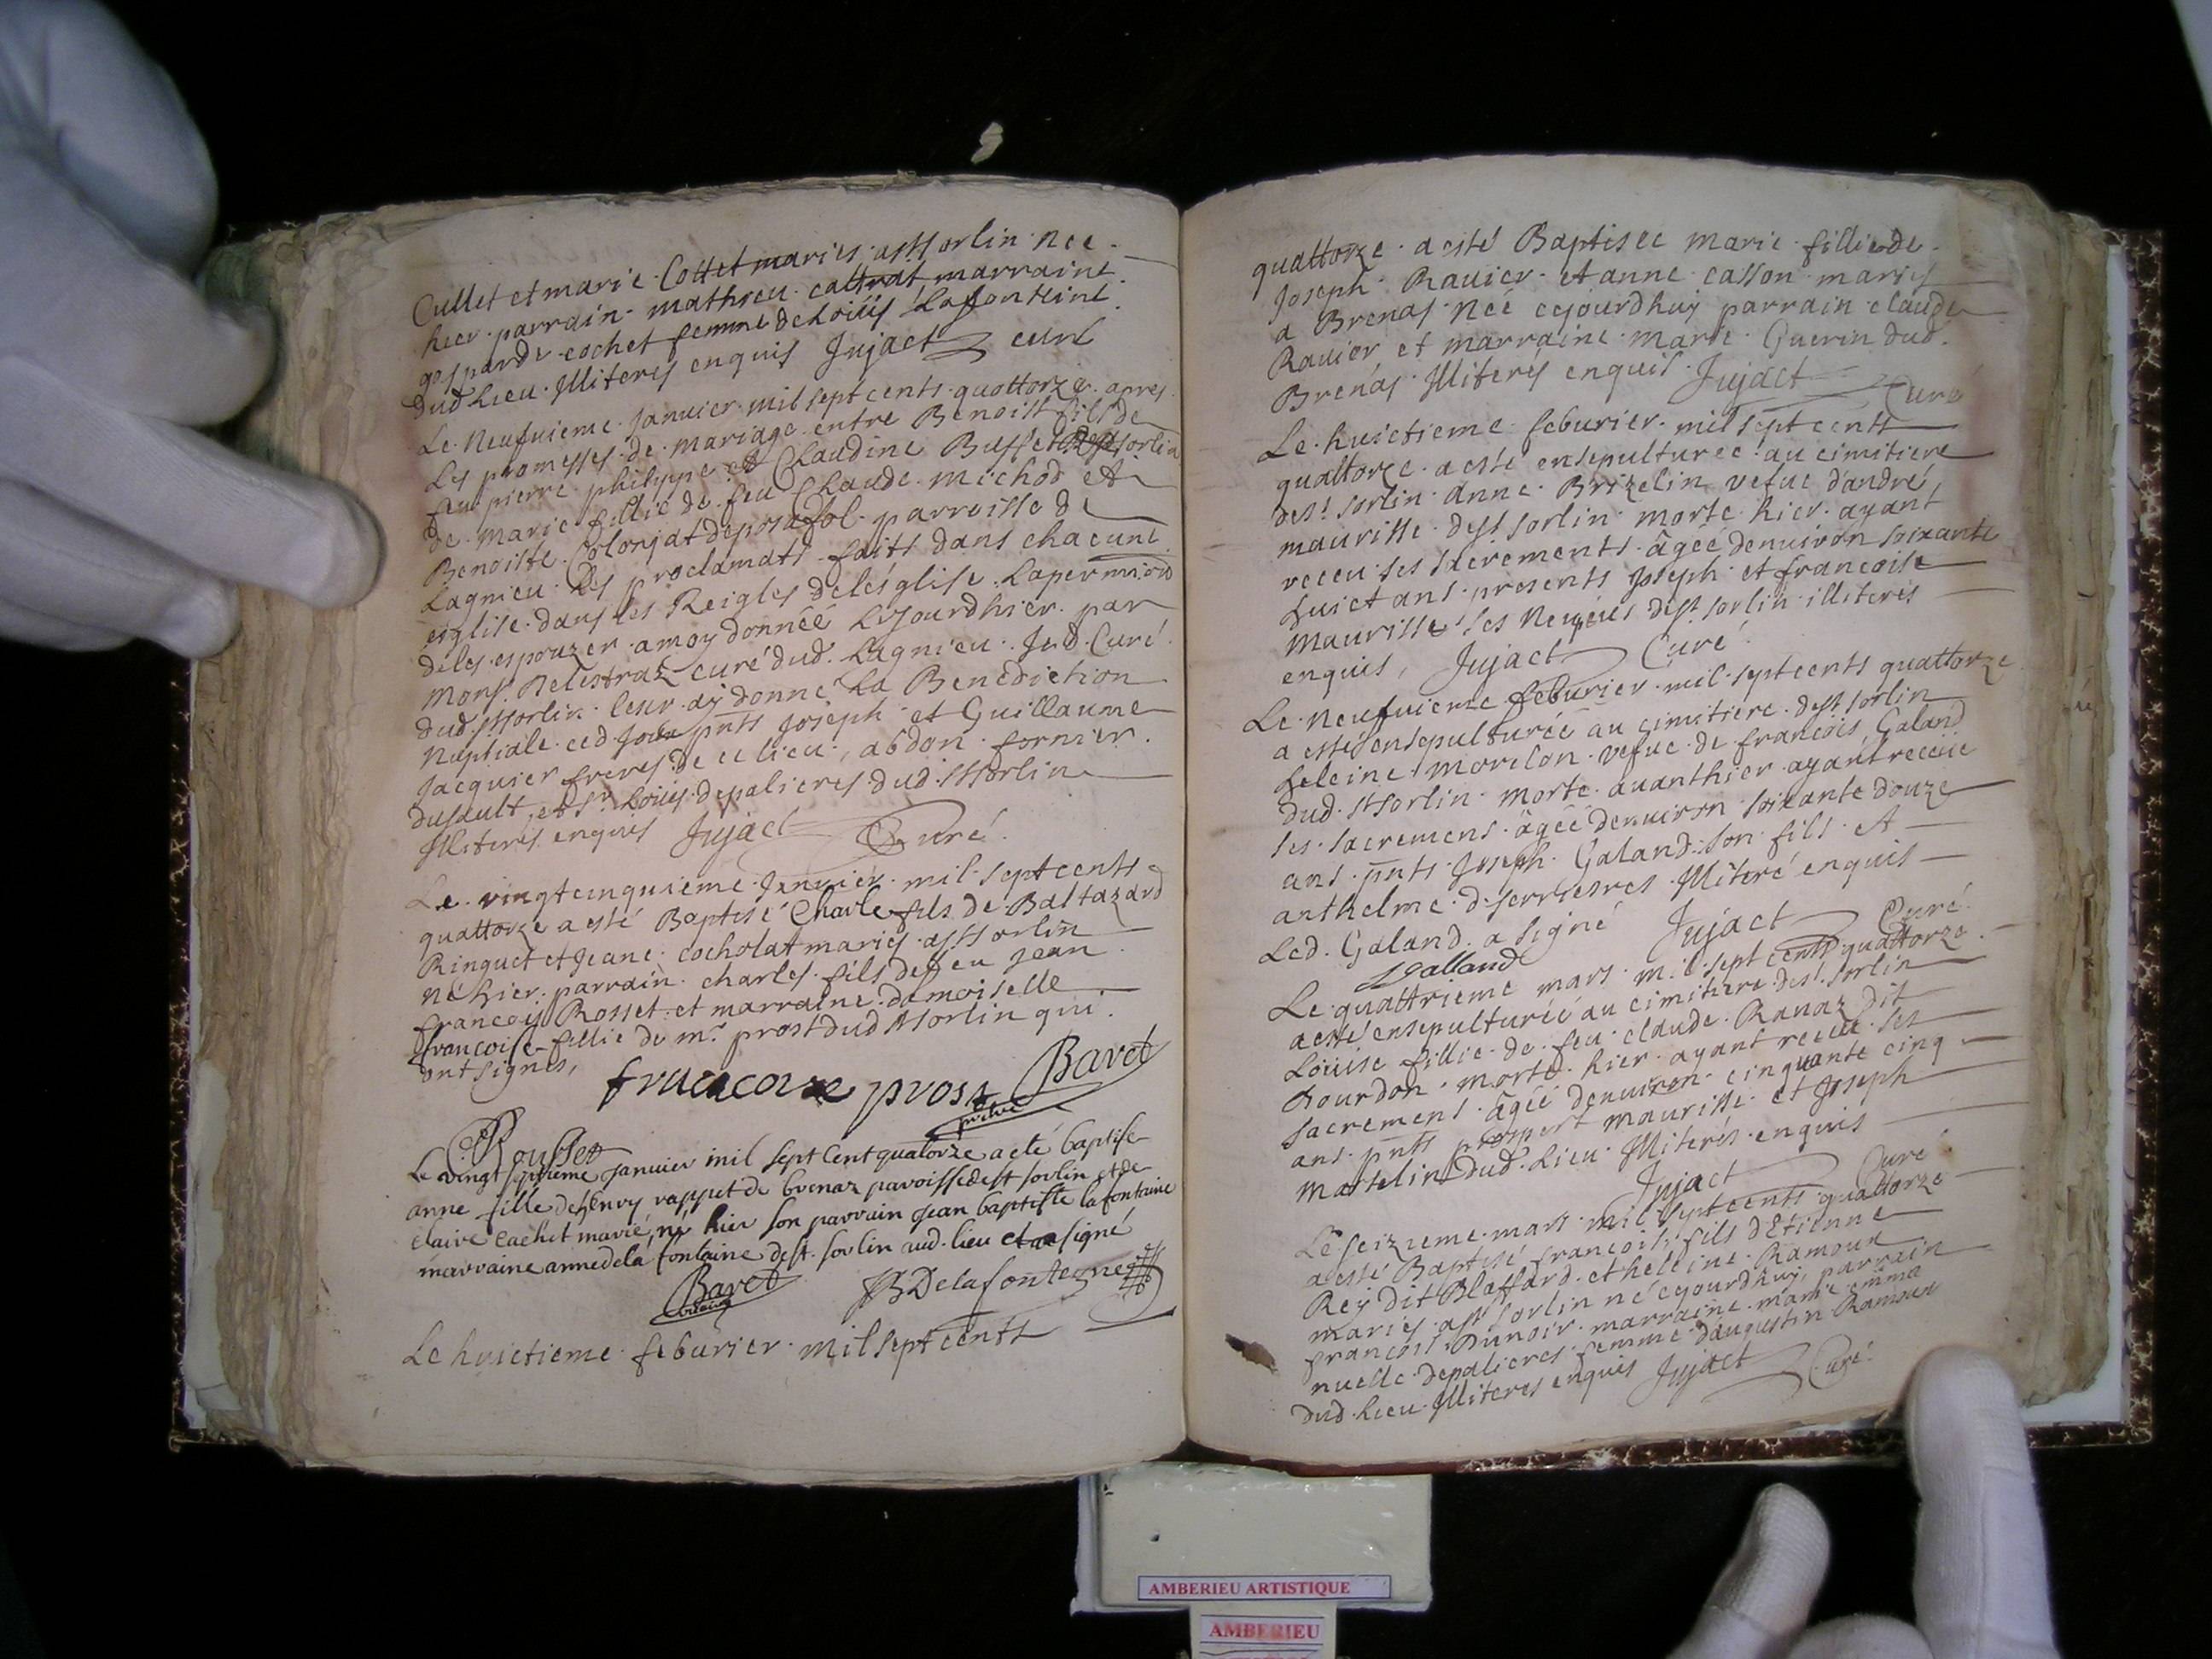 Cullet et marie Cottet maries a st sorlin nee
hier parrain mathieu cattrat marraine
gasparde cochet femme de Loüis Lafonteine
dud Lieu Illiterés enquis Jujact curé
Le Neufuieme Janvier mil sept cents quattorze apres
Les promesses de mariage entre Benoist fils de
feu pierre philippe et Claudine Buffet de st sorlin
de marie fillie de feu Claude michod et
Benoiste Colonjat de posafol parroisse de
Lagnieu Les proclamats faits dans chacune
eiglise dans les Reigles de léglise La permission
de les espouzer a moy donnéé Le jourdhier par
Monsr Delestraz curé dud Lagnieu Je d. Curé
dud. st sorlin leur aÿ donné La Benediction
Nuptiale ced Jour pnts Joseph et Guillaume
Jacquier freres de ce lieu, abdon fornier
dusault, et sr Loüis depalieres dud st sorlin
Illiterés enquis Jujact Curé
Le vingt cinquieme Janvier mil sept cents
quattorze a esté Baptisé Charle fils de Baltazard
Ringuet et Jeane cocholat maries a st sorlin
né hier parrain charles fils de feu Jean
francois Rosset et marraine damoiselle
francoise fillie de mr prost dud st sorlin qui
ont signés,
francoise prost Baret
prêtre
Rousset
Le vingt septieme janvier mil sept cent quatorze a eté baptisé
anne fille de henry rappet de brenaz paroisse de st sorlin et de
claire cachet marié, né hier son parrain jean baptiste lafontaine
marraine anne de la fontaine de st. sorlin aud. lieu et a signé
Baret JB Delafonteyne
Le huictieme feburier mil sept cents
quattorze a esté Baptisee marie fillie de
Joseph Rauier et anne casson maries
a Brenas Neé cejourdhuy parrain claude
Rauier et marraine marie Guerin dud.
Brenas Illiterés enquis Jujact Curé
Le huictieme feburier mil sept cents
quattorze a esté ensepulturee au cimitiere
de st sorlin Anne Brizelin vefue dandré
maurisse de st sorlin morte hier ayant
receu ses sacrements âgeé denuiron soixante
huict ans presents Joseph et francoise
Maurisse ses Neueus de st sorlin illiteres
enquis, Jujact Curé
Le Neufuieme feburier mil sept cents quattorze
a esté ensepulturéé au cimitiere de st sorlin
heleine morelon vefue de francois Galand
dud. st sorlin morte auanthier ayant receüe
ses sacremens âgéé denuiron soixante douze
ans pnts Joseph Galand son fils et
anthelme deserriesres Illiteré enquis
Led. Galand a signé Jujact Curé
JGalland
Le quattrieme mars mil sept cents quattorze
a esté ensepulturéé au cimitiere de st sorlin
Loüise fillie de feu claude Ranaz dit
Lourdon morte hier ayant receüe ses
sacremens âgéé denuiron cinquante cinq
ans pnts prospert maurisse et Joseph
Martelin dud. Lieu Illiterés enquis
Jujact Curé
Le seizieme mars mil sept cents quattorze
a esté Baptisé francois fils dEtienne
Reÿ dit Blaffard et helleine Ramoux
mariés a st sorlin né cejourdhuy, parrain
francois Dunoir marraine marie emma
nuelle depalieres femme daugustin Ramoux
dud. Lieu Illiteres enquis Jujact Curé
AMBERIEU ARTISTIQUE
AMBERIEU